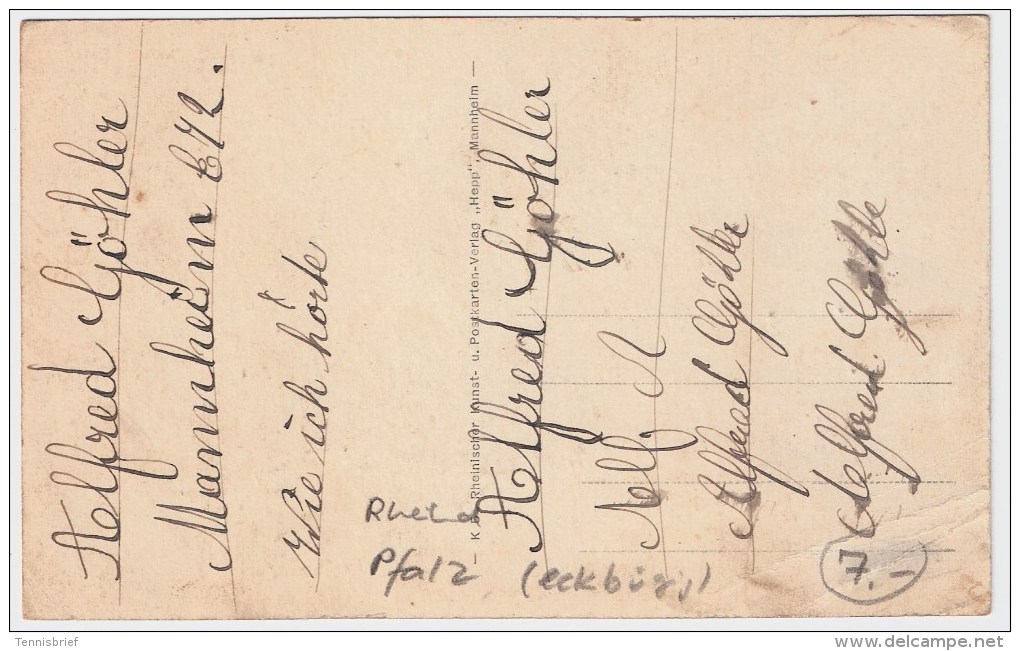 Alfred Göhler
Mannheim E 72.
Wie ich hörte
— K. & B. Rheinischer Kunst- u. Postkarten-Verlag „Hepp", Mannheim —
Alfred Göhler
Alf
Alfred Göhler
Alfred Göhle
Rheinld
Pfalz (eckbürg)
7.-
Tennisbrief
www.delcampe.net